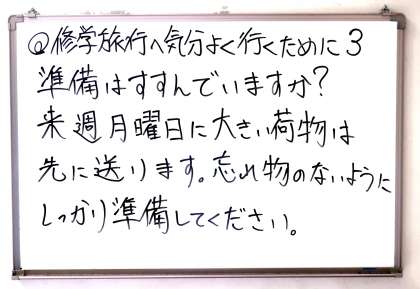 @修学旅行へ気分よく行くために3
準備はすすんでいますか?
来週月曜日に大きい荷物は
先に送ります。忘れ物のないように
しっかり準備してください。